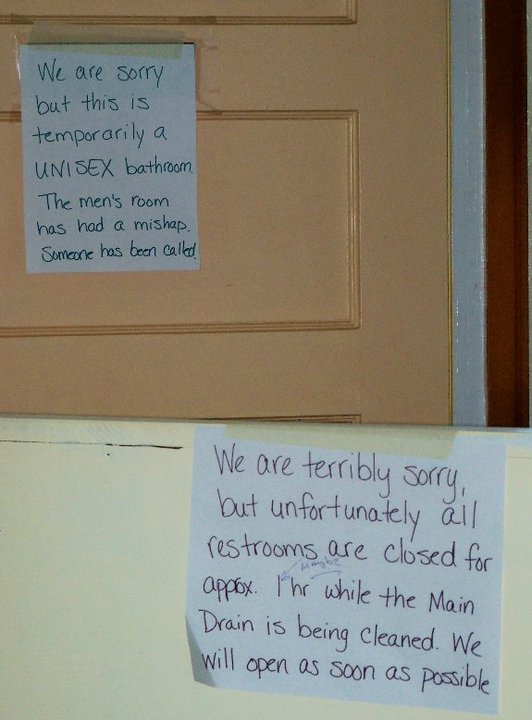 We are sorry
but this is
temporarily a
UNISEX bathroom.
The men's room
has had a mishap.
Someone has been called
We are terribly sorry,
but unfortunately all
restrooms are closed for
Maybe
approx. 1 hr while the Main
Drain is being cleaned. We
will open as soon as possible